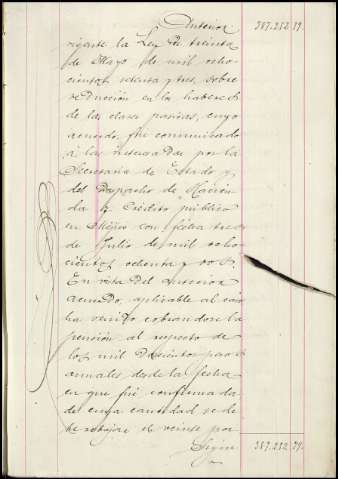 Anterior 387.252.79.
vigente la Ley de treinta
de Mayo de mil ocho-
cientos setenta y tres, sobre
reducción en los haberes
de las clases pasivas, cuyo
acuerdo, fué comunicado
á las interesadas por la
Secretaria de Estado y
del Despacho de Hacien-
da y Crédito público
en Méjico con fecha tres
de Julio de mil ocho-
cientos ochenta y dos.
En vista del anterior
acuerdo, aplicable al caso
ha venido cobrandose la
pensión al respecto de
los mil doscientos pesos
anuales desde la fecha
en que fué confirmada
de cuya cantidad se de-
be rebajar el veinte por
Sigue 387.252.79.